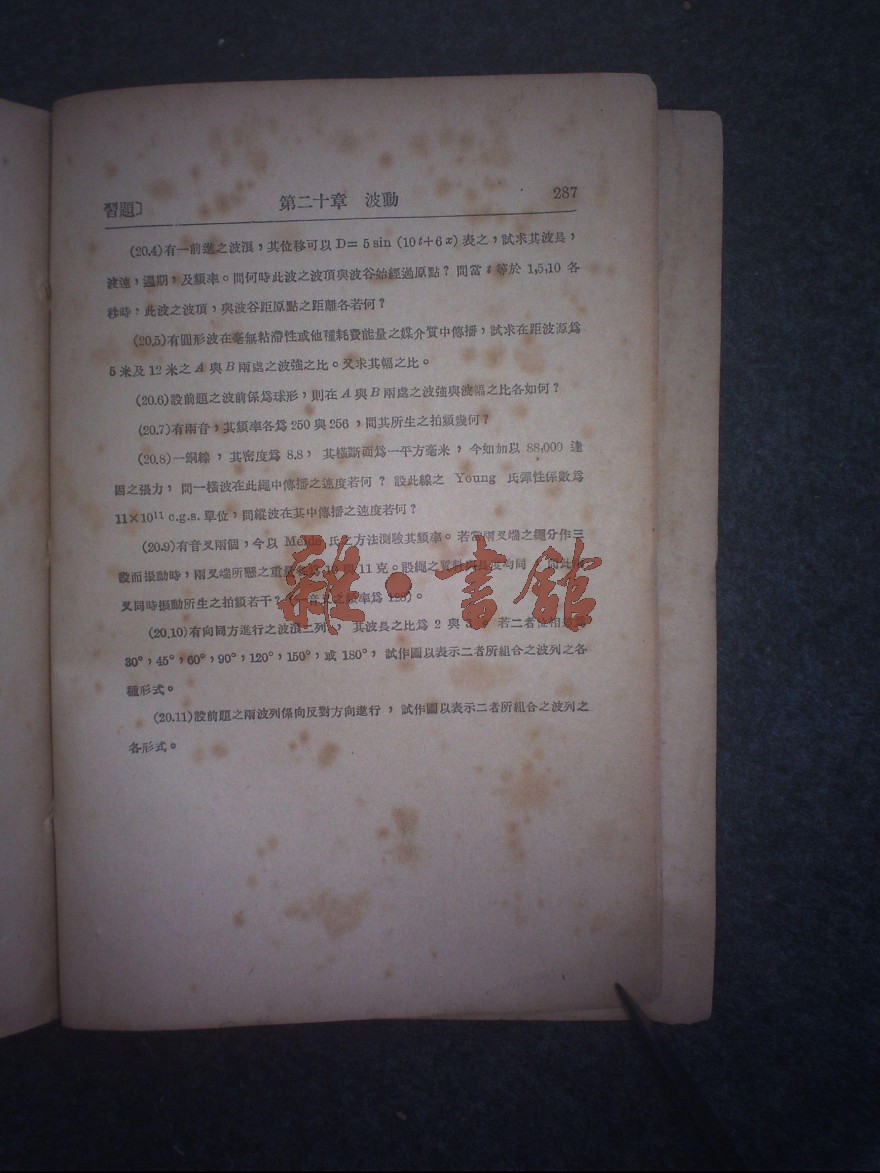 習題〕
第二十章 波動
287
(20.4)有一前進之波浪，其位移可以 D= 5 sin (10t+6x) 表之，試求其波長，
波速，週期，及頻率。問何時此波之波頂與波谷始經過原點？問當 t 等於 1,5,10 各
秒時，此波之波頂，與波谷距原點之距離各若何？
(20.5)有圓形波在毫無粘滯性或他種耗費能量之媒介質中傳播，試求在距波源爲
5 米及 12 米之 A 與 B 兩處之波強之比。又求其幅之比。
(20.6)設前題之波前係爲球形，則在 A 與 B 兩處之波強與波幅之比各如何？
(20.7)有兩音，其頻率各爲 250 與 256 ，問其所生之拍頻幾何？
(20.8)一銅線，其密度爲 8.8， 其橫斷面爲一平方毫米，今如加以 88,000 達
因之張力，問一橫波在此繩中傳播之速度若何？設此線之 Young 氏彈性係數爲
11×10¹¹ c.g.s. 單位，問縱波在其中傳播之速度若何？
(20.9)有音叉兩個，今以 Melde 氏之方法測驗其頻率。若當兩叉端之繩分作三
段而振動時，兩叉端所懸之重量各爲 10 與 11 克。設繩之質料與長度均同
叉同時振動所生之拍頻若干？ 音叉之頻率爲 128)。
(20.10)有向同方進行之波浪二列， 其波長之比爲 2 與 3 若二者位相
30°，45°，60°，90°，120°，150°，或 180°， 試作圖以表示二者所組合之波列之各
種形式。
(20.11)設前題之兩波列係向反對方向進行，試作圖以表示二者所組合之波列之
各形式。
雜·書館